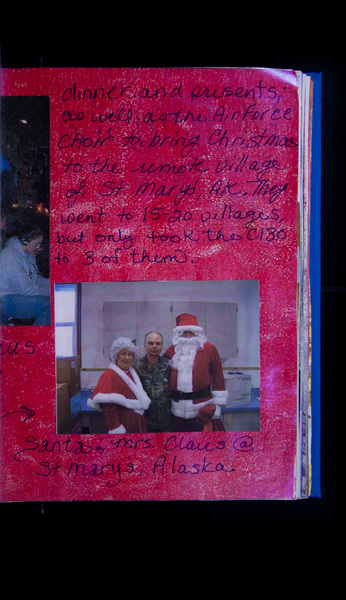 dinner and presents,
as well as the Air Force
Choir to bring Christmas
to the remote village
of St Mary's, AK. They
went to 15-20 villages,
but only took the C130
to 3 of them.
Santa & Mrs. Claus @
St Mary's, Alaska.